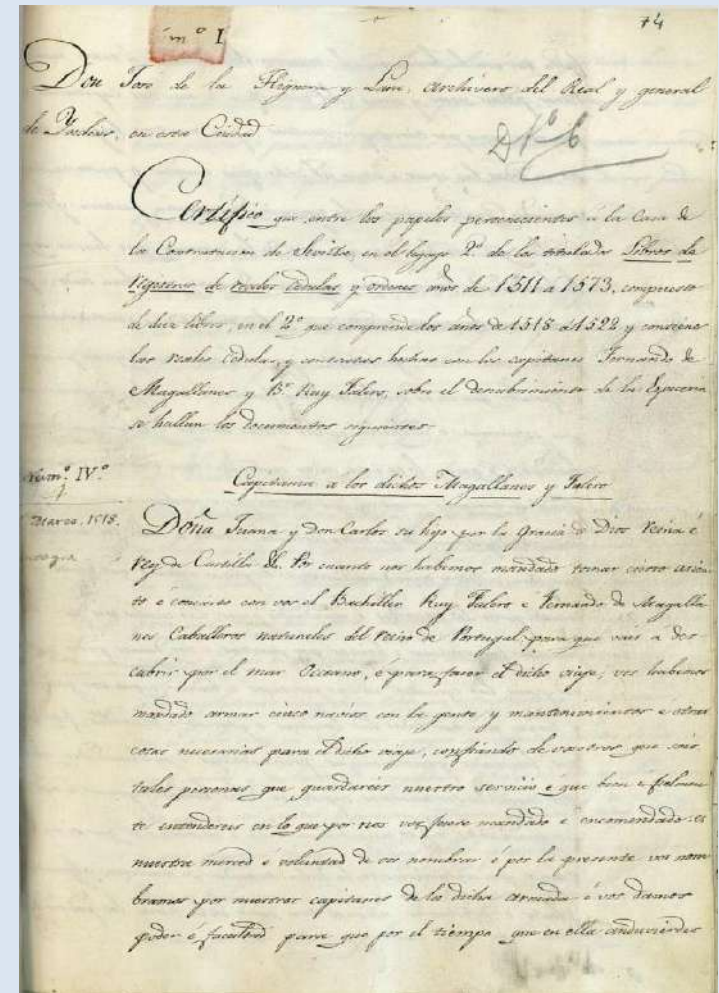 74
m.º I
Don José de la Higuera y Lara, Archivero del Real y general
de Yndias, en esta Ciudad
D Nº 6
Certifico que entre los papeles pertenecientes á la Casa de
la Contratacion de Sevilla, en el legajo 2º de los titulados Libros de
registros de reales cedulas y ordenes años de 1511 a 1573, compuesto
de diez libros, en el 2º que comprende los años de 1518 á 1522 y contiene
las reales cedulas, y contratas hechas con los capitanes Fernando de
Magallanes y B.r Ruy Falero, sobre el descubrimiento de la Especeria
se hallan los documentos siguientes
Num.º IV.º
Capitania a los dichos Magallanes y Falero
Marzo, 1518.
Doña Juana y don Carlos su hijo por la gracia de Dios Reina é
Rey de Castilla &. Por cuanto nos habemos mandado tomar cierto asien-
to é concierto con vos el Bachiller Ruy Falero e Fernando de Magalla-
nes Caballeros naturales del reino de Portugal, para que vais a des-
cubrir por el mar Occeano, é para facer el dicho viaje, vos habemos
mandado armar cinco navios con la gente y mantenimientos e otras
cosas necesarias para el dicho viaje, confiando de vosotros que sois
tales personas que guardareis nuestro servicio e que bien e fielmen-
te entendereis en lo que por nos vos fuere mandado e encomendado: es
nuestra merced e voluntad de vos nombrar é por la presente vos nom-
bramos por nuestros capitanes de la dicha armada é vos damos
poder é facultad para que por el tiempo que en ella anduvierdes